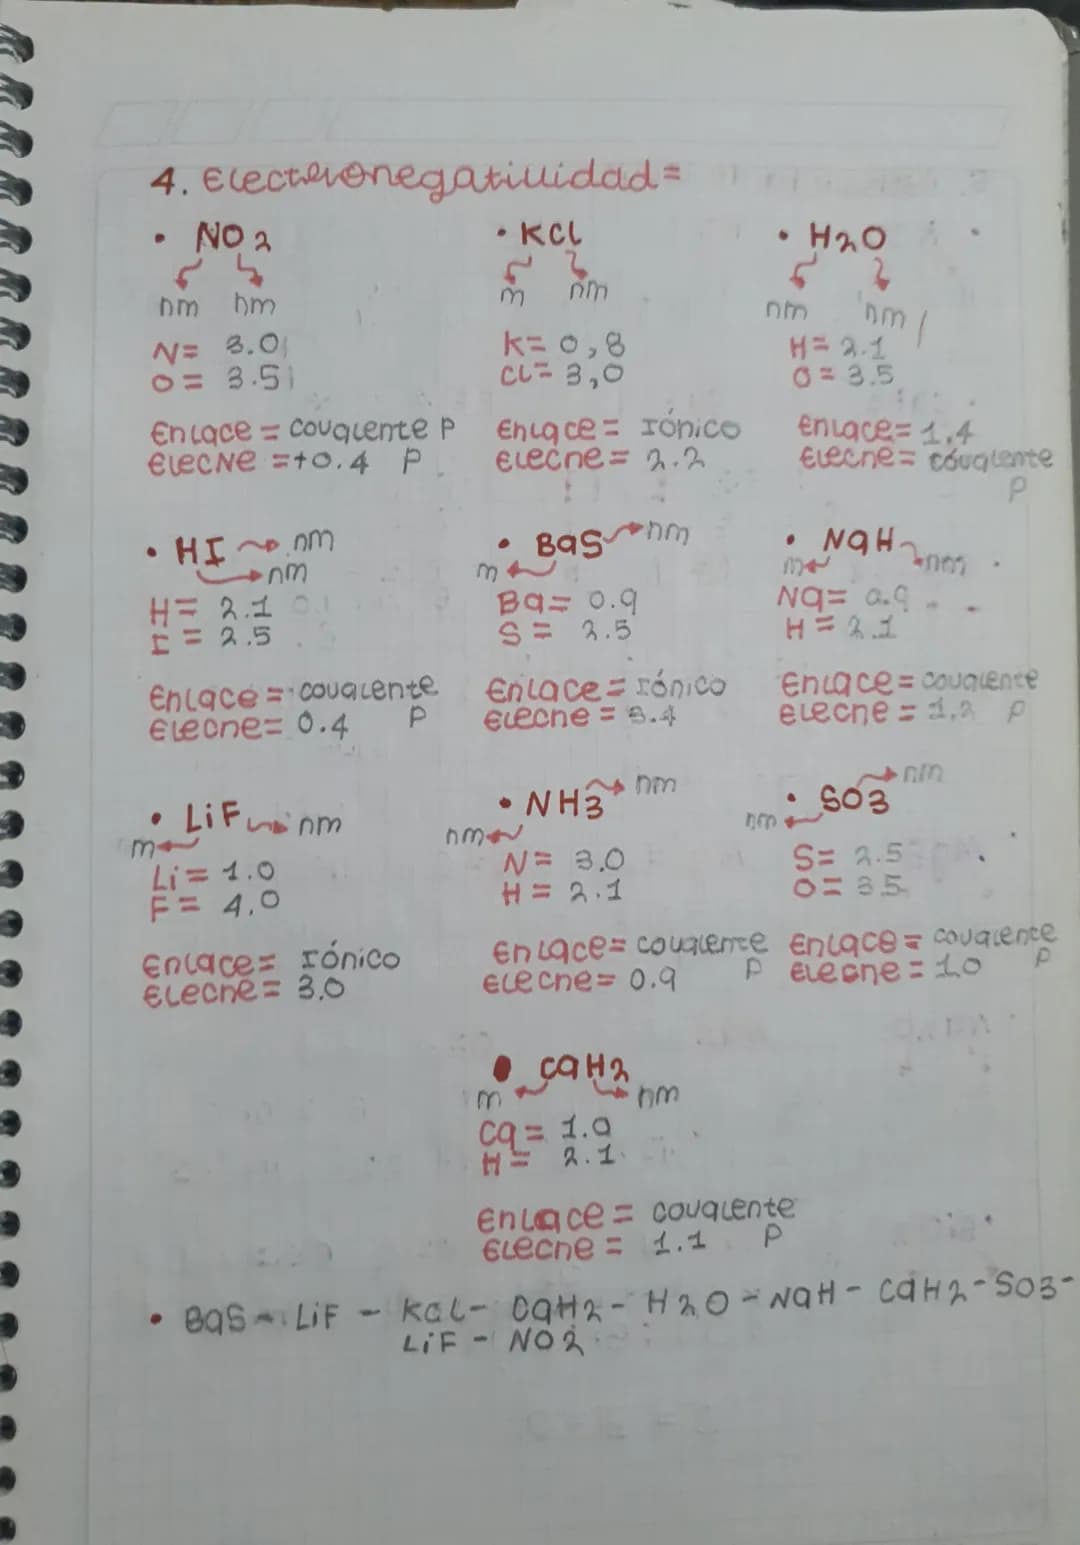 4. Electronegatividad=
• NO2
nm nm
N= 3.0
O= 3.5
Enlace = covalente P
ElecNe =+0.4 P
• KCl
m nm
K= 0,8
Cl= 3,0
Enlace= Iónico
Elecne= 2.2
• H2O
nm nm
H= 2.1
O= 3.5
Enlace= 1,4
Elecne= covalente
P
• HI nm
nm
H= 2.1
I= 2.5
Enlace= covalente
Elecne= 0.4 P
• BaS nm
m
Ba= 0.9
S= 2.5
Enlace= Iónico
Elecne= 3.4
• NaH
m nm
Na= 0.9
H= 2.1
Enlace= covalente
Elecne= 1,2 P
• LiF nm
m
Li= 1.0
F= 4,0
Enlace= Iónico
Elecne= 3.0
• NH3 nm
nm
N= 3.0
H= 2.1
Enlace= covalente
Elecne= 0.9 P
• SO3 nm
nm
S= 2.5
O= 3.5
Enlace= covalente
Elecne= 10 P
• CaH2
m nm
Ca= 1.0
H= 2.1
Enlace= covalente
Elecne= 1.1 P
• BaS - LiF - KCl - CaH2 - H2O - NaH - CaH2 - SO3 -
LiF - NO2